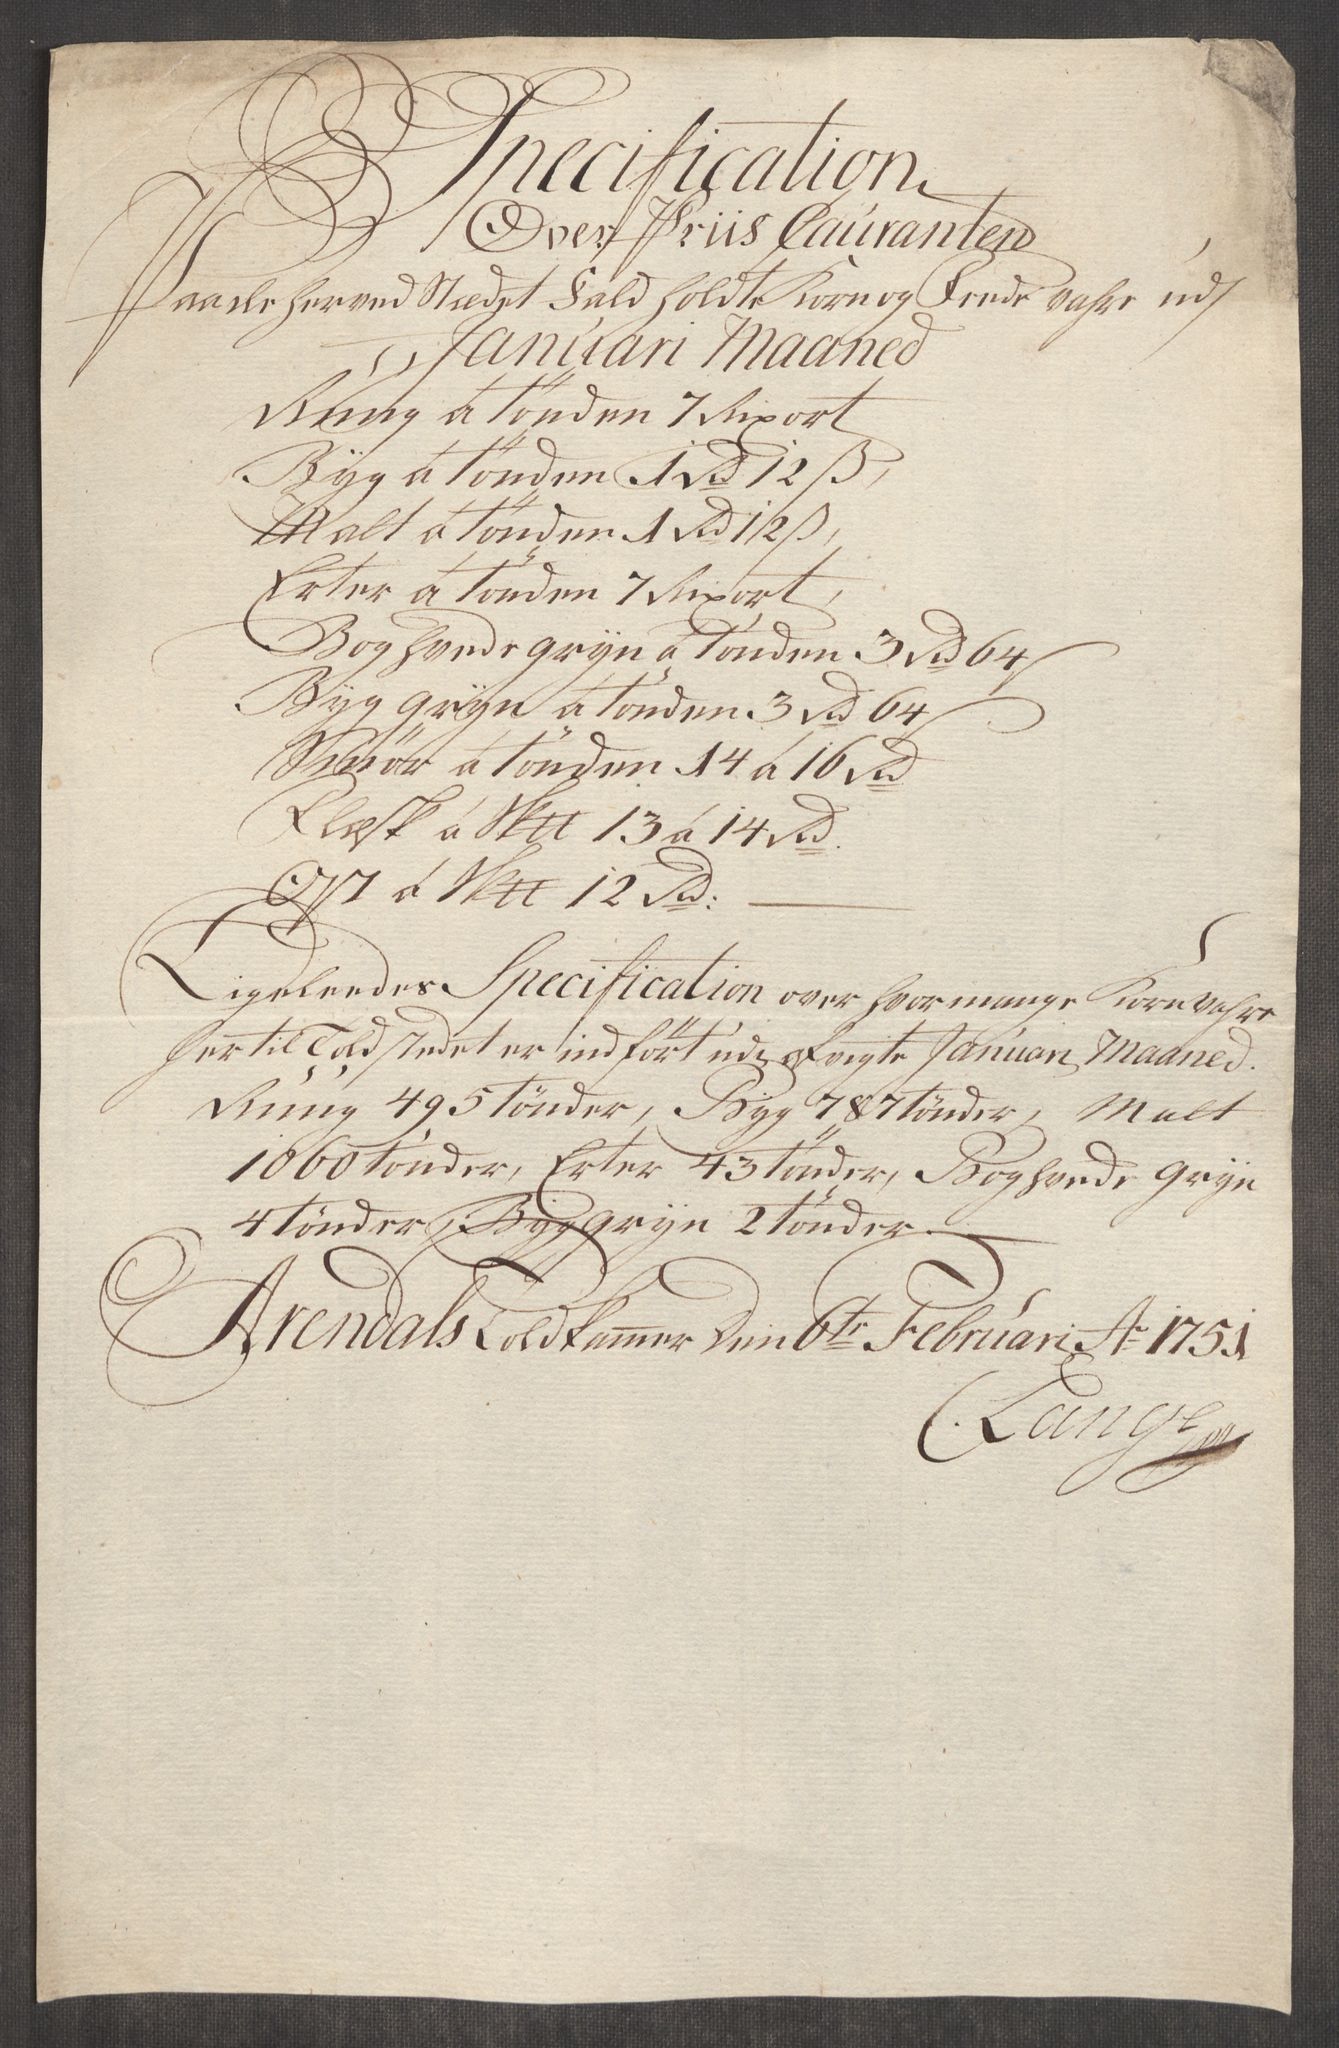 Specification
Over Priis Cauranten
Paa de her ved Stædet Fald holdte Korn og Fede vahre udi
Januari Maaned
Rúúg á tönden 7 Rixort
Byg á tönden 1 Rd 12 β,
Malt á tönden 1 Rd 12 β,
Erter á tönden 7 Rixort,
Boghvede gryn á tönden 3 Rd 64 β
Byg gryn á tönden 3 Rd 64 β
Smör á tönden 14 á 16 Rd
Flesk á Sktt 13 á 14 Rd.
Ost á Sktt 12 Rd:
Ligeleedes Specification over hvor mange Korn vahre
her til Toldstedet er indfört udi Januari Maaned.
Rúúg 495 tönder, Byg 787 tönder, Malt
1060 tönder, Erter 43 tönder, Boghvede gryn
4 tönder, Byg gryn 2 tönder.
Arendals Toldkammer Den 6te Februari Ao 1751
C. Lange